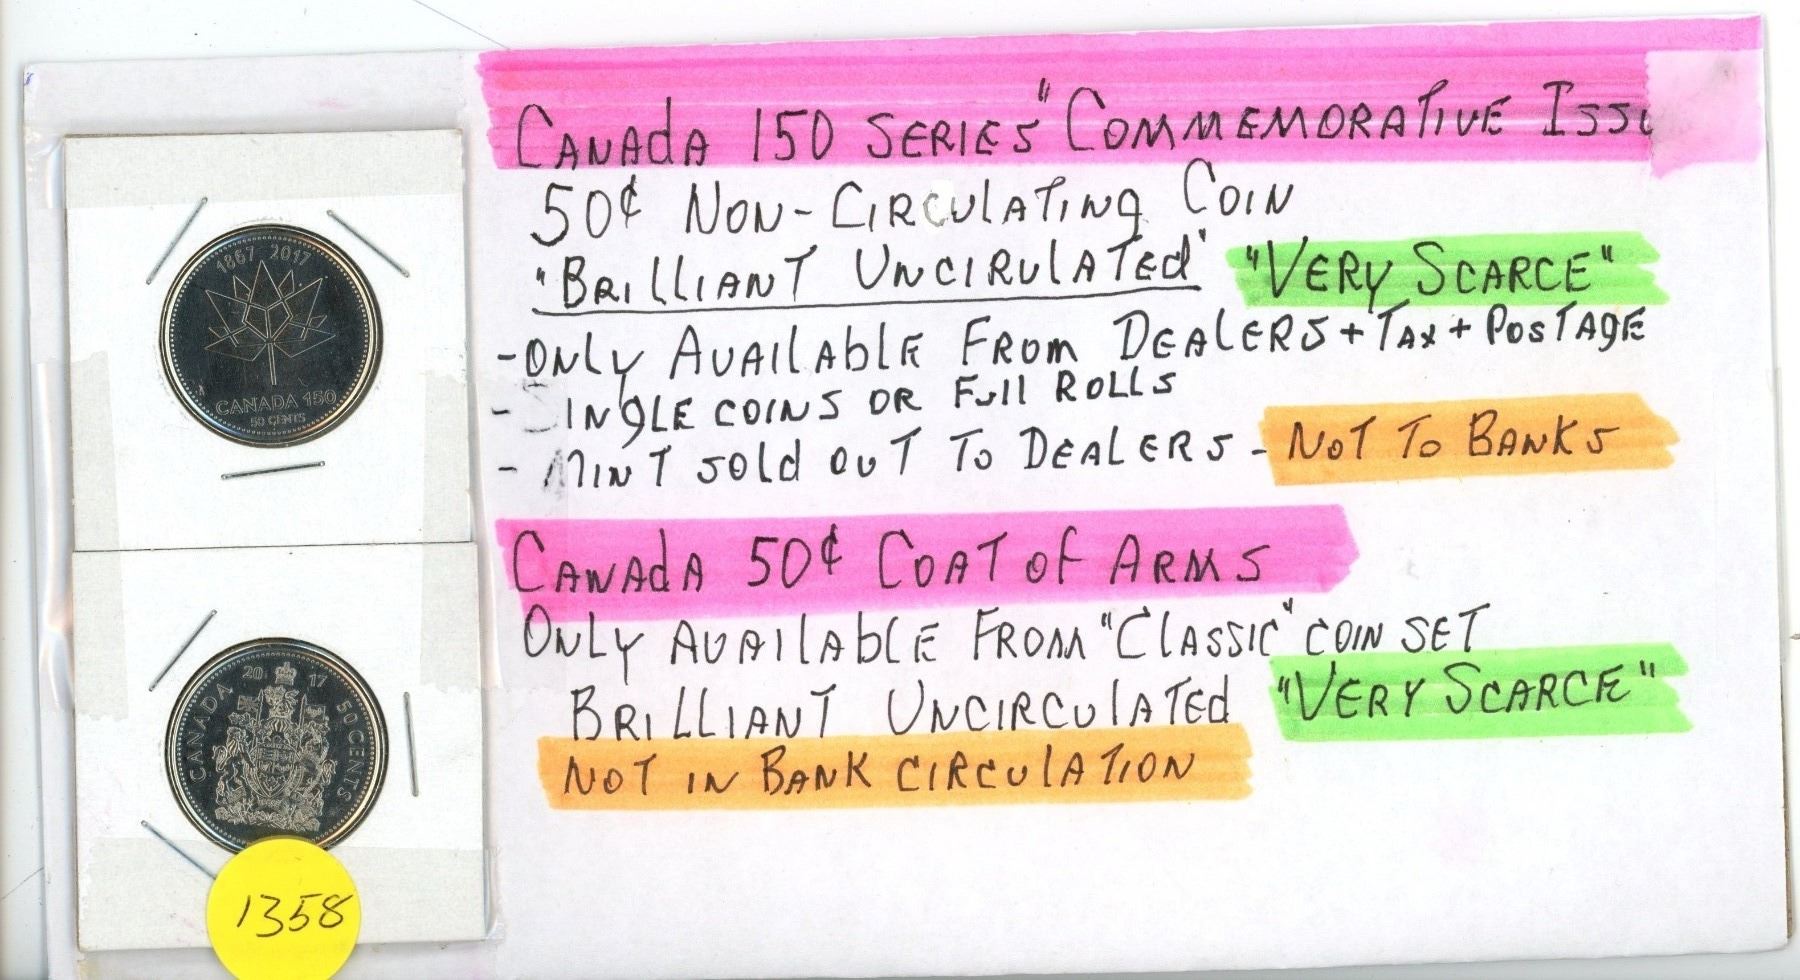 1867 2017
CANADA 150
50 CENTS
CANADA 2017 50 CENTS
1358
CANADA 150 SERIES "COMMEMORATIVE ISSU
50¢ NON-CIRCULATING COIN
"BRILLIANT UNCIRULATED" "VERY SCARCE"
-ONLY AVAILABLE FROM DEALERS + TAX + POSTAGE
- SINGLE COINS OR FULL ROLLS
- MINT SOLD OUT TO DEALERS - NOT TO BANKS
CANADA 50¢ COAT OF ARMS
ONLY AVAILABLE FROM "CLASSIC" COIN SET
BRILLIANT UNCIRCULATED "VERY SCARCE"
NOT IN BANK CIRCULATION